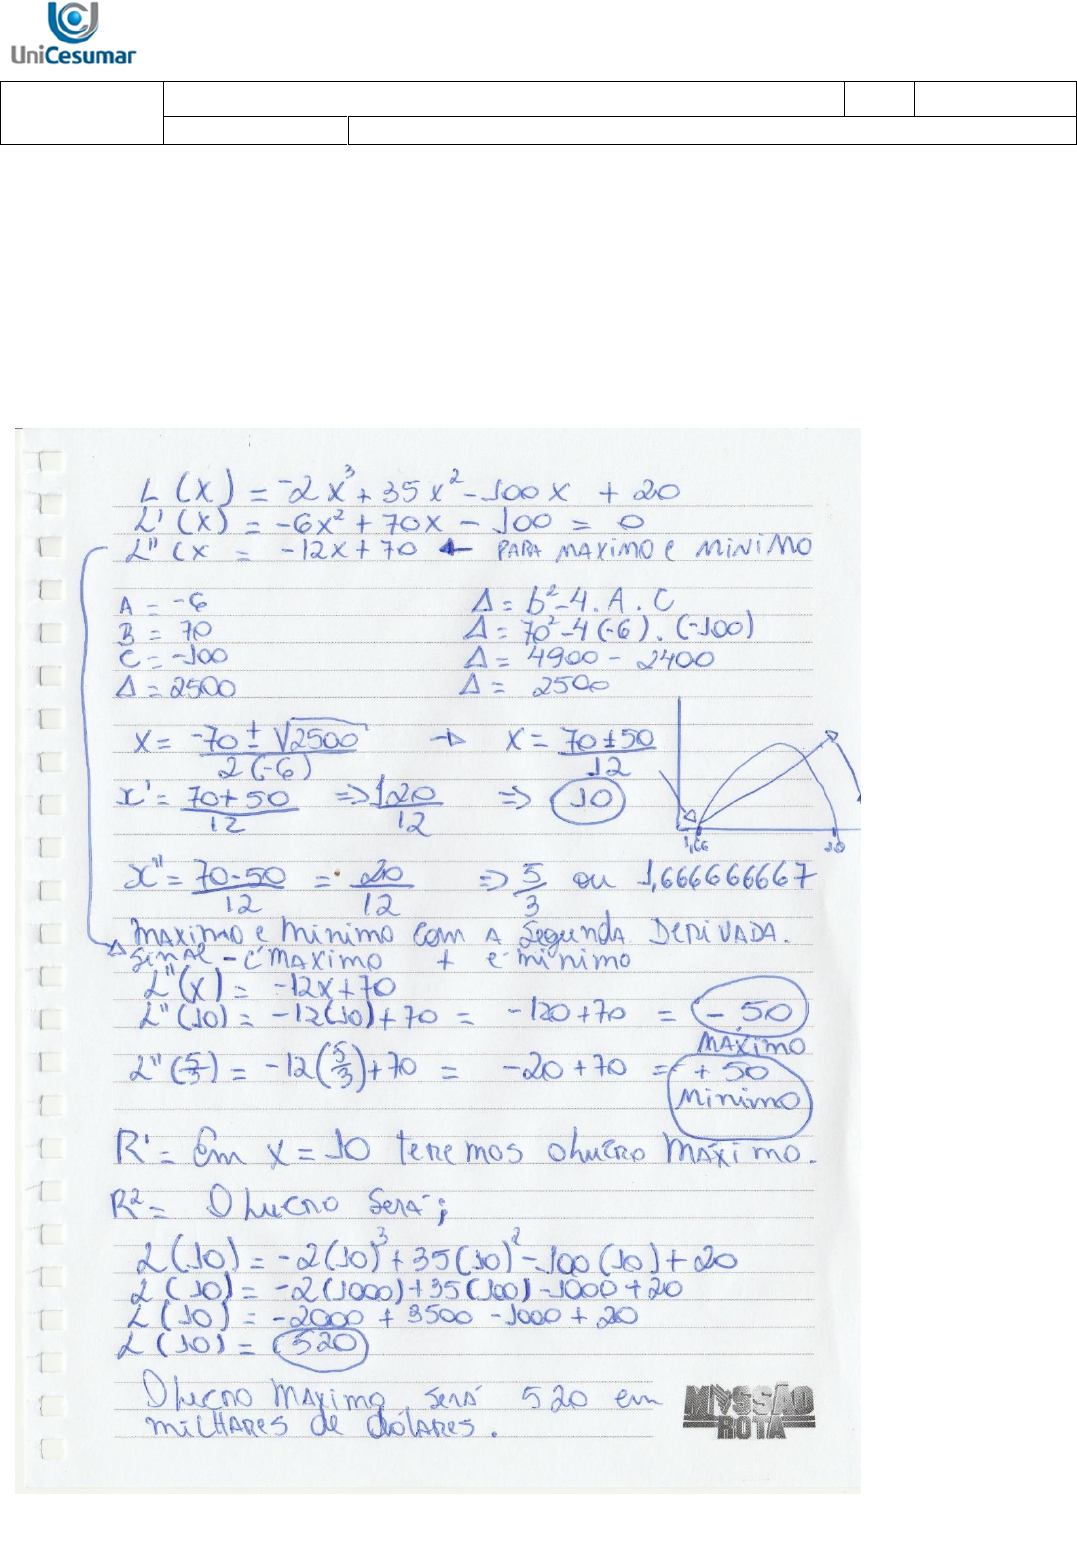 UniCesumar
L(x) = -2x³ + 35x² - 100x + 20
L'(x) = -6x² + 70x - 100 = 0
L"(x = -12x + 70 ← PARA MAXIMO e MINIMO
A = -6
B = 70
C = -100
Δ = 2500
Δ = b² - 4 . A . C
Δ = 70² - 4 (-6) . (-100)
Δ = 4900 - 2400
Δ = 2500
x = -70 ± √2500 / 2(-6) → x = 70 ± 50 / 12
x' = 70 + 50 / 12 ⇒ 120 / 12 ⇒ 10
1,66 10
x" = 70 - 50 / 12 = 20 / 12 ⇒ 5/3 ou 1,666666667
MAXIMO e MINIMO com A Segunda DERIVADA.
SINAL - é MAXIMO + é minimo
L"(x) = -12x + 70
L"(10) = -12(10) + 70 = -120 + 70 = - 50
MÁXIMO
L"(5/3) = -12(5/3) + 70 = -20 + 70 = + 50
Minimo
R¹ = Em x = 10 teremos o lucro MÁXIMO.
R² = O Lucro Será;
L(10) = -2(10)³ + 35(10)² - 100(10) + 20
L(10) = -2(1000) + 35(100) - 1000 + 20
L(10) = -2000 + 3500 - 1000 + 20
L(10) = 520
O lucro MAXIMO será 520 em
milHARES de dólARES.
MISSÃO
ROTA